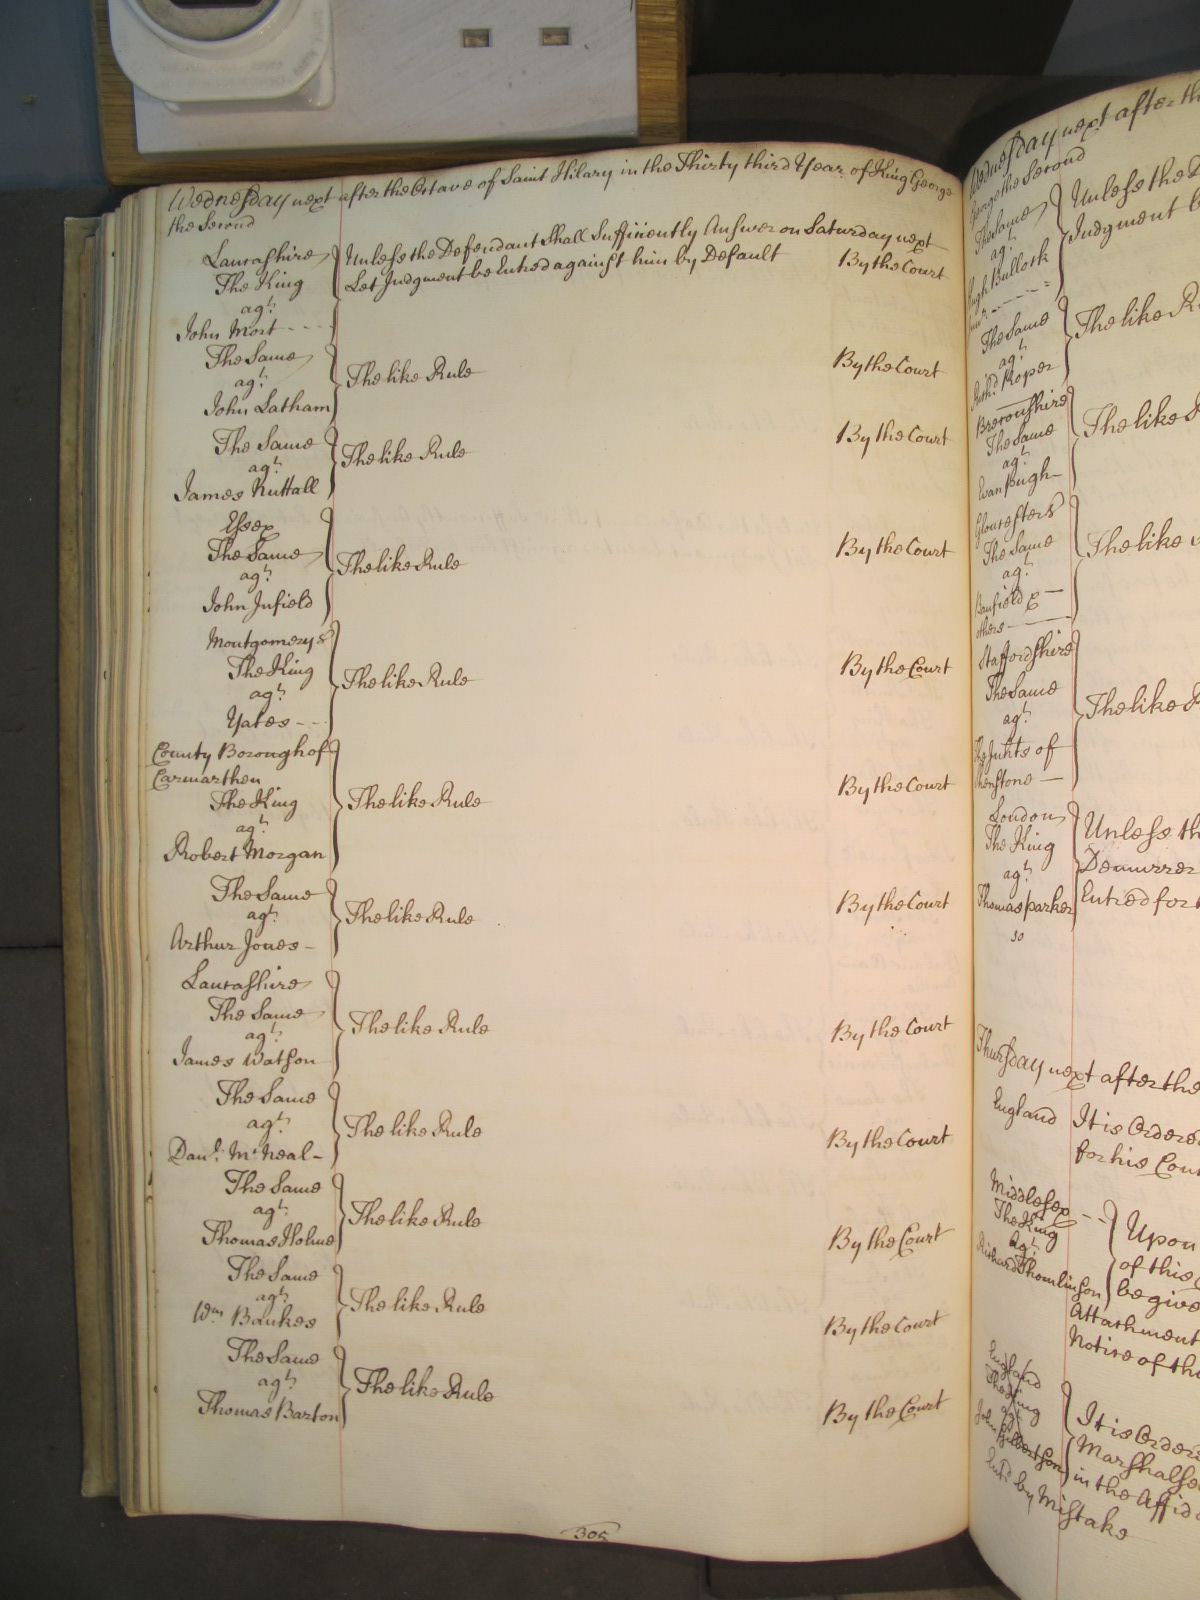 Wednesday next after the Octave of Saint Hilary in the Thirty third Year of King George
the Second
Lancashire
The King
agt.
John Mort
Unless the Defendant Shall Sufficiently Answer on Saturday next
Let Judgment be Entred against him by Default By the Court
The Same
agt.
John Latham
The like Rule By the Court
The Same
agt.
James Nuttall
The like Rule By the Court
Essex
The Same
agt.
John Infield
The like Rule By the Court
Montgomerys
The King
agt.
Yates
The like Rule By the Court
County Borough of
Carmarthen
The King
agt.
Robert Morgan
The like Rule By the Court
The Same
agt.
Arthur Jones
The like Rule By the Court
Lancashire
The Same
agt.
James Watson
The like Rule By the Court
The Same
agt.
Danl. McNeal
The like Rule By the Court
The Same
agt.
Thomas Holme
The like Rule By the Court
The Same
agt.
Wm Bankes
The like Rule By the Court
The Same
agt.
Thomas Barton
The like Rule By the Court
305
Wednesday next after th
George the Second
The Same
agt.
Hugh Bullock
Unless the D
Judgment b
The Same
agt.
Richd Roper
The like R
Breconshire
The Same
agt.
Evan Pugh
The like
Gloucesters
The Same
agt.
Banfield &
others
The like
Staffordshire
The Same
agt.
of
The like R
London
The King
agt.
Thomas parker
so
Unless th
Demurrer
Entred for
Thursday next after the
England It is Ordered
for his Coun
Middlesex
The King
Agt.
Richard Thomlinson
Upon
of this C
be give
Attachment
Notice of th
England
The King
agt.
John Gilbertson
Entd by Mistake
It is Order
Marshalse
in the Affid